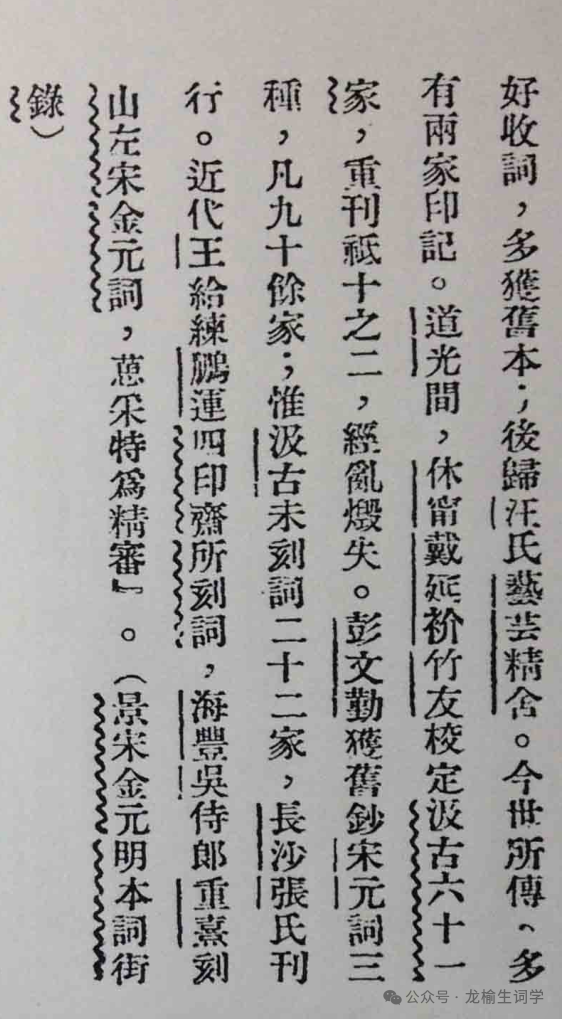 好收詞，多獲舊本；後歸汪氏藝芸精舍。今世所傳、多
有兩家印記。道光間，休甯戴延衸竹友校定汲古六十一
家，重刊祗十之二，經亂燬失。彭文勤獲舊鈔宋元詞三
種，凡九十餘家；惟汲古未刻詞二十二家，長沙張氏刊
行。近代王給練鵬運四印齋所刻詞，海豐吳侍郎重熹刻
山左宋金元詞，蒐采特爲精審』。（景宋金元明本詞街
錄）
公众号·龙榆生词学